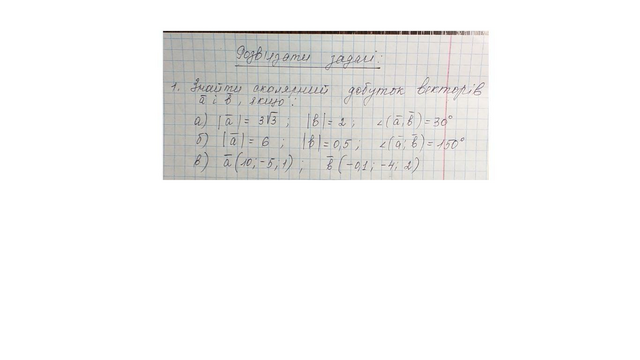 Розв'язати задачі:
1. Знайти скалярний добуток векторів
a̅ і b̅, якщо:
а) |a̅| = 3√3; |b̅| = 2; ∠(a̅; b̅) = 30°
б) |a̅| = 6; |b̅| = 0,5; ∠(a̅; b̅) = 150°
в) a̅(10; -5; 1); b̅(-0,1; -4; 2)